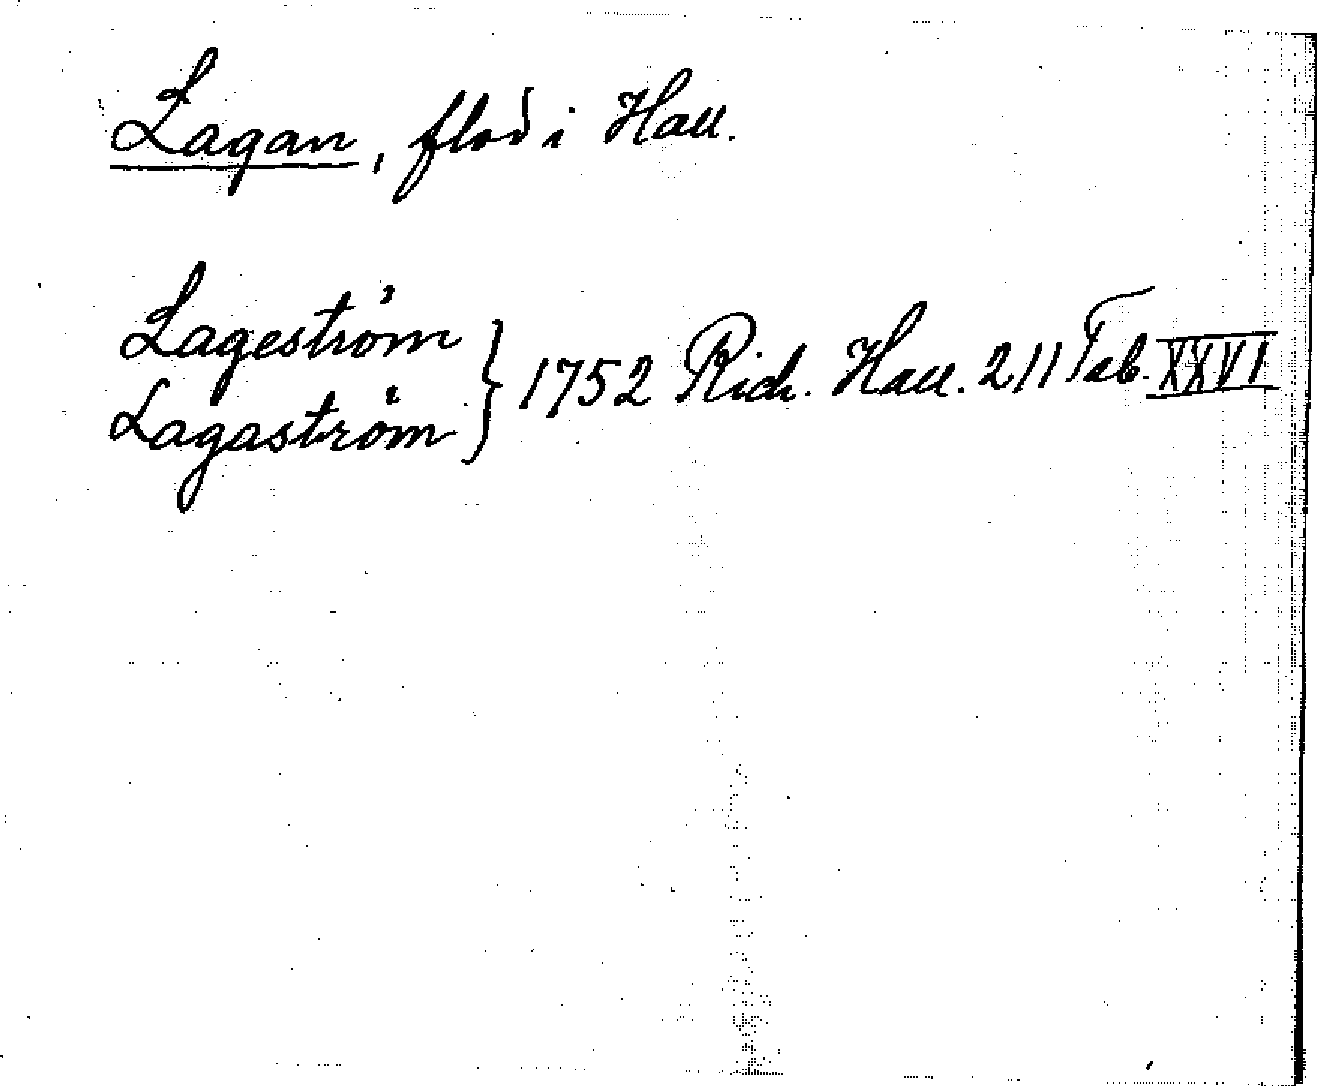 Lagan, flod i Hall.
Lageström } 1752 Rich. Hall. 211 Tab. XXVI
Lagaström